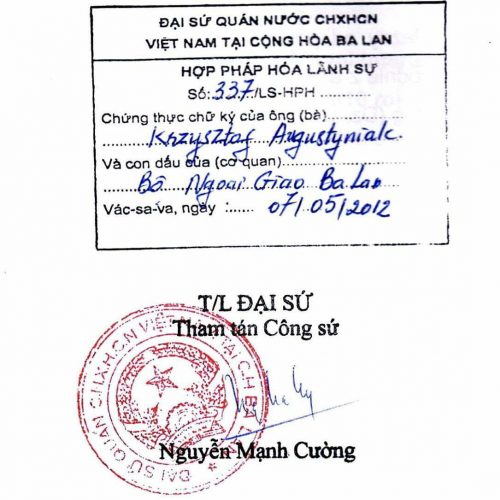 ĐẠI SỨ QUÁN NƯỚC CHXHCN
VIỆT NAM TẠI CỘNG HÒA BA LAN
HỢP PHÁP HÓA LÃNH SỰ
Số: 337/LS-HPH
Chứng thực chữ ký của ông (bà)
Krzysztof Augustyniak
Và con dấu của (cơ quan)
Bộ Ngoại Giao Ba Lan
Vác-sa-va, ngày : 07/05/2012
T/L ĐẠI SỨ
Tham tán Công sứ
ĐẠI SỨ QUÁN CHXHCN VIỆT NAM TẠI CH BA LAN
Nguyễn Mạnh Cường